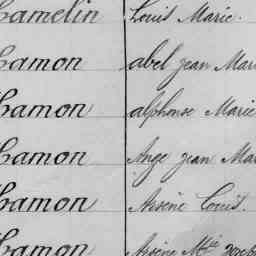 Hamelin Louis Marie.
Hamon abel jean Mar
Hamon alphonse Marie
Hamon Ange jean Mar
Hamon Arsène Louis.
Hamon Arsène Mie